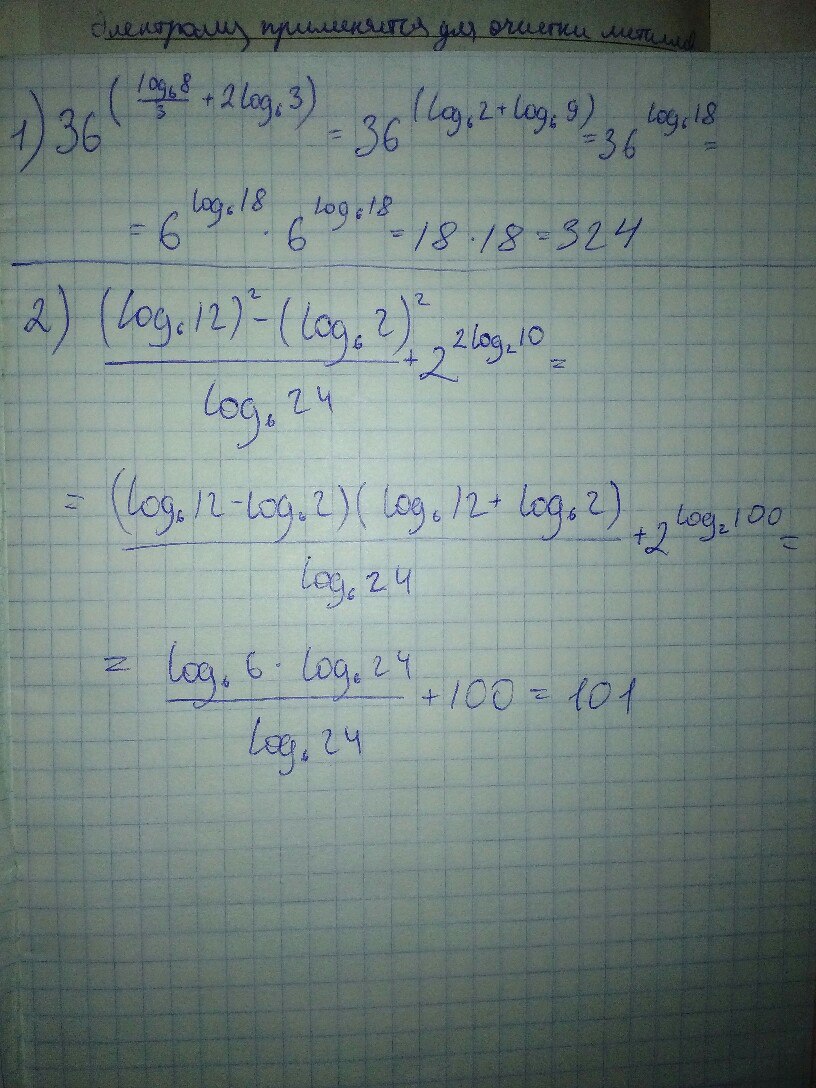 Электролиз применяется для очистки металла
1) 36^(log₆8/3 + 2log₆3) = 36^(log₆2 + log₆9) = 36^log₆18 =
= 6^log₆18 · 6^log₆18 = 18 · 18 = 324
2) ((log₆12)² - (log₆2)²)/log₆24 + 2^2log₂10 =
= (log₆12 - log₆2)(log₆12 + log₆2)/log₆24 + 2^log₂100 =
= log₆6 · log₆24/log₆24 + 100 = 101